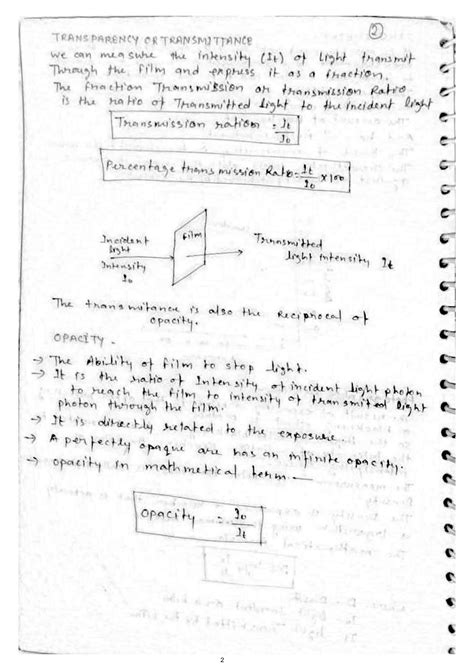 2
TRANSPARENCY OR TRANSMITTANCE
we can measure the intensity (It) of light transmit
Through the film and express it as a fraction.
The fraction Transmission or transmission Ratio
is the ratio of Transmitted light to the incident light
Transmission ration = It/Io
Percentage transmission Ratio = It/Io x100
Incident
light
Intensity
Io
film
Transmitted
light intensity It
The transmitance is also the Reciprocal of
opacity.
OPACITY -
→ The Ability of film to stop light.
→ It is the ratio of Intensity of incident light photon
to reach the film to intensity of transmited light
photon through the film.
→ It is directly related to the exposure.
→ A perfectly opaque are has an infinite opacity.
→ opacity in mathmetical term -
Opacity = Io/It
2